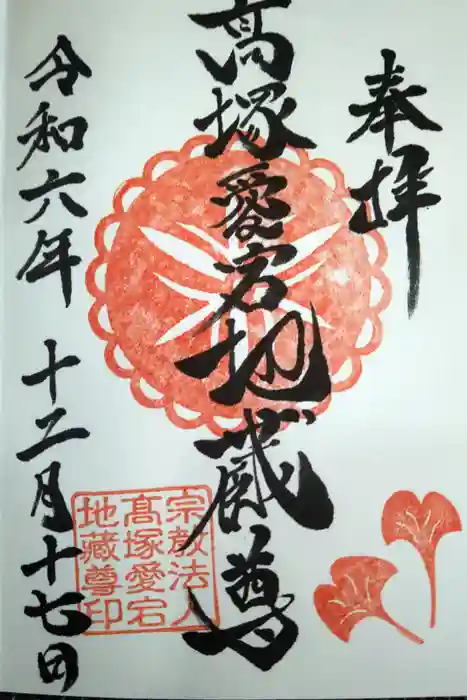 奉拝
高塚愛宕地蔵尊
令和六年 十二月十七日
宗教法人
高塚愛宕
地藏尊印